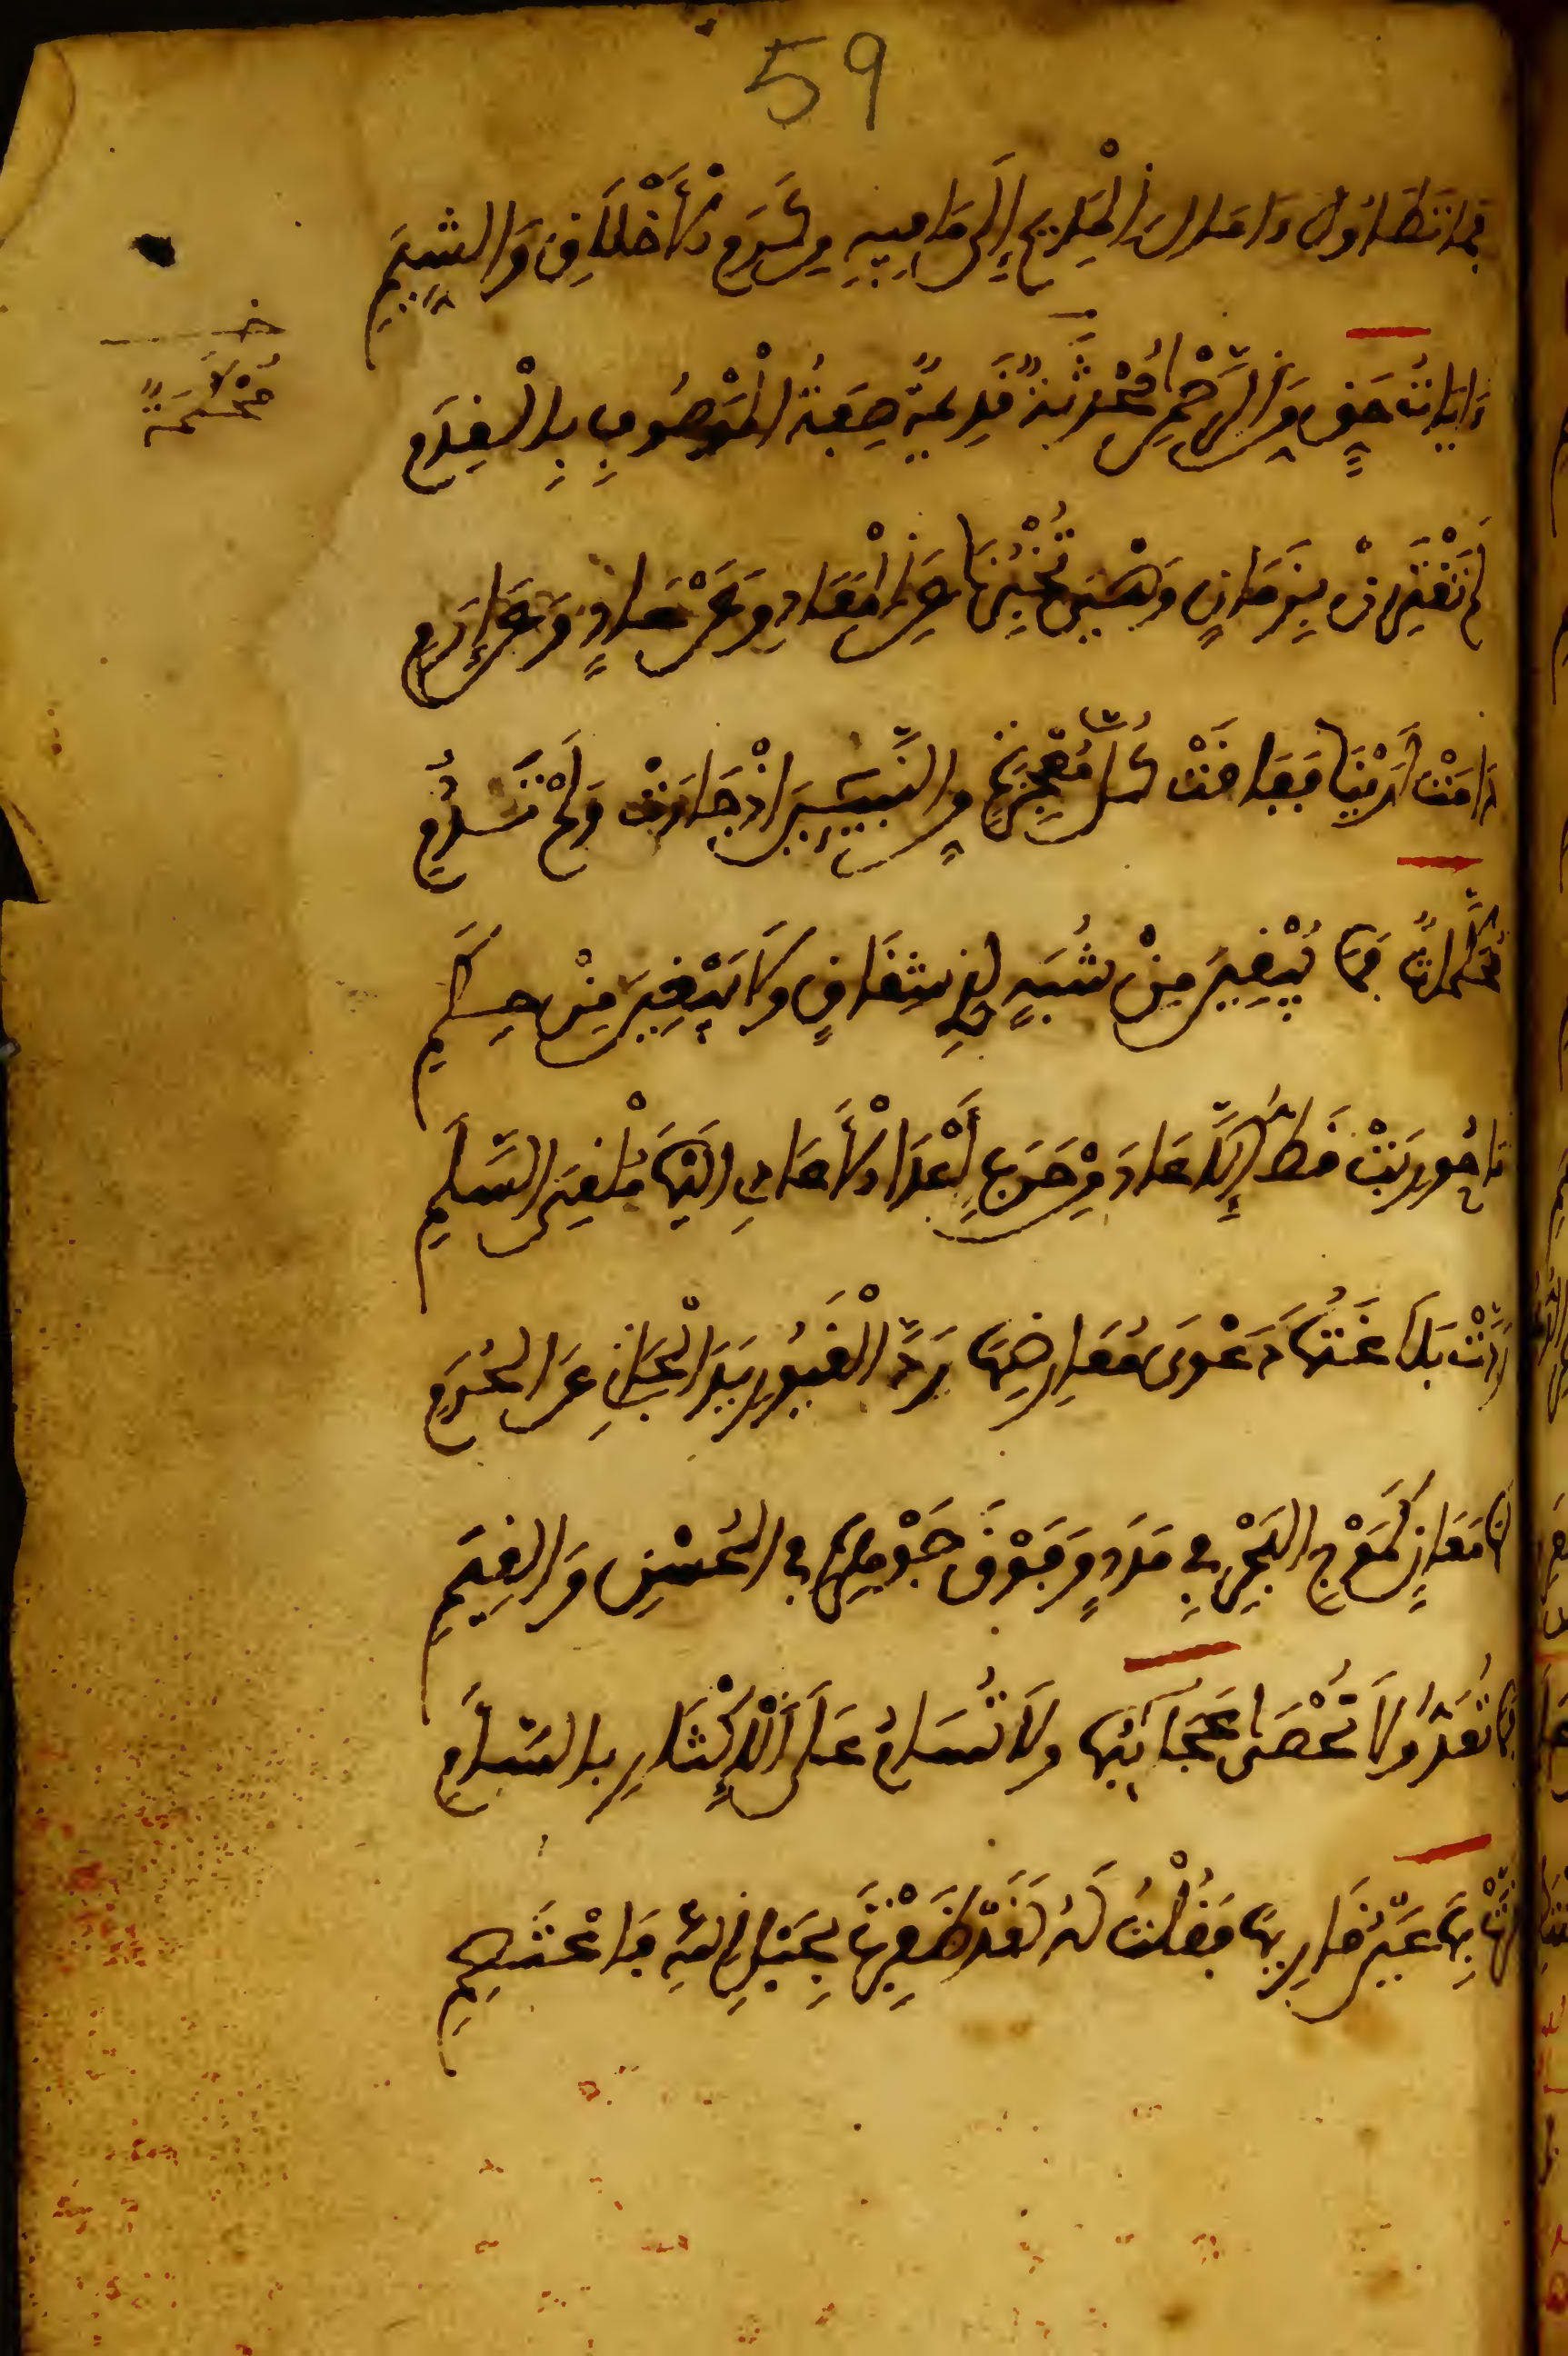 59
فَمَا تَطَاوُلُ ءَامَالِ الْمَدِيحِ إِلَى مَا فِيهِ مِنْ كَرَمِ الْأَخْلَاقِ وَالشِّيَمِ
ءَايَاتُ حَقٍّ مِنَ الرَّحْمٰنِ مُحْدَثَةٌ قَدِيمَةٌ صِفَةُ الْمَوْصُوفِ بِالْقِدَمِ
خ
مُحْكَمَةٌ
لَمْ تَقْتَرِنْ بِزَمَانٍ وَهْيَ تُخْبِرُنَا عَنِ الْمَعَادِ وَعَنْ عَادٍ وَعَنْ إِرَمِ
دَامَتْ لَدَيْنَا فَفَاقَتْ كُلَّ مُعْجِزَةٍ مِنَ النَّبِيِّينَ إِذْ جَاءَتْ وَلَمْ تَدُمِ
مُحَكَّمَاتٌ فَمَا يُبْقِينَ مِنْ شُبَهٍ لِذِي شِقَاقٍ وَلَا يَبْغِينَ مِنْ حِكَمِ
مَا حُورِبَتْ قَطُّ إِلَّا عَادَ مِنْ حَرَبٍ أَعْدَا الْأَعَادِي إِلَيْهَا مُلْقِيَ السَّلَمِ
رَدَّتْ بَلَاغَتُهَا دَعْوَى مُعَارِضِهَا رَدَّ الْغَيُورِ يَدَ الْجَانِي عَنِ الْحُرَمِ
لَهَا مَعَانٍ كَمَوْجِ الْبَحْرِ فِي مَدَدٍ وَفَوْقَ جَوْهَرِهِ فِي الْحُسْنِ وَالْقِيَمِ
فَمَا تُعَدُّ وَلَا تُحْصَى عَجَائِبُهَا وَلَا تُسَامُ عَلَى الْإِكْثَارِ بِالسَّأَمِ
قَرَّتْ بِهَا عَيْنُ قَارِيهَا فَقُلْتُ لَهُ لَقَدْ ظَفِرْتَ بِحَبْلِ اللهِ فَاعْتَصِمِ